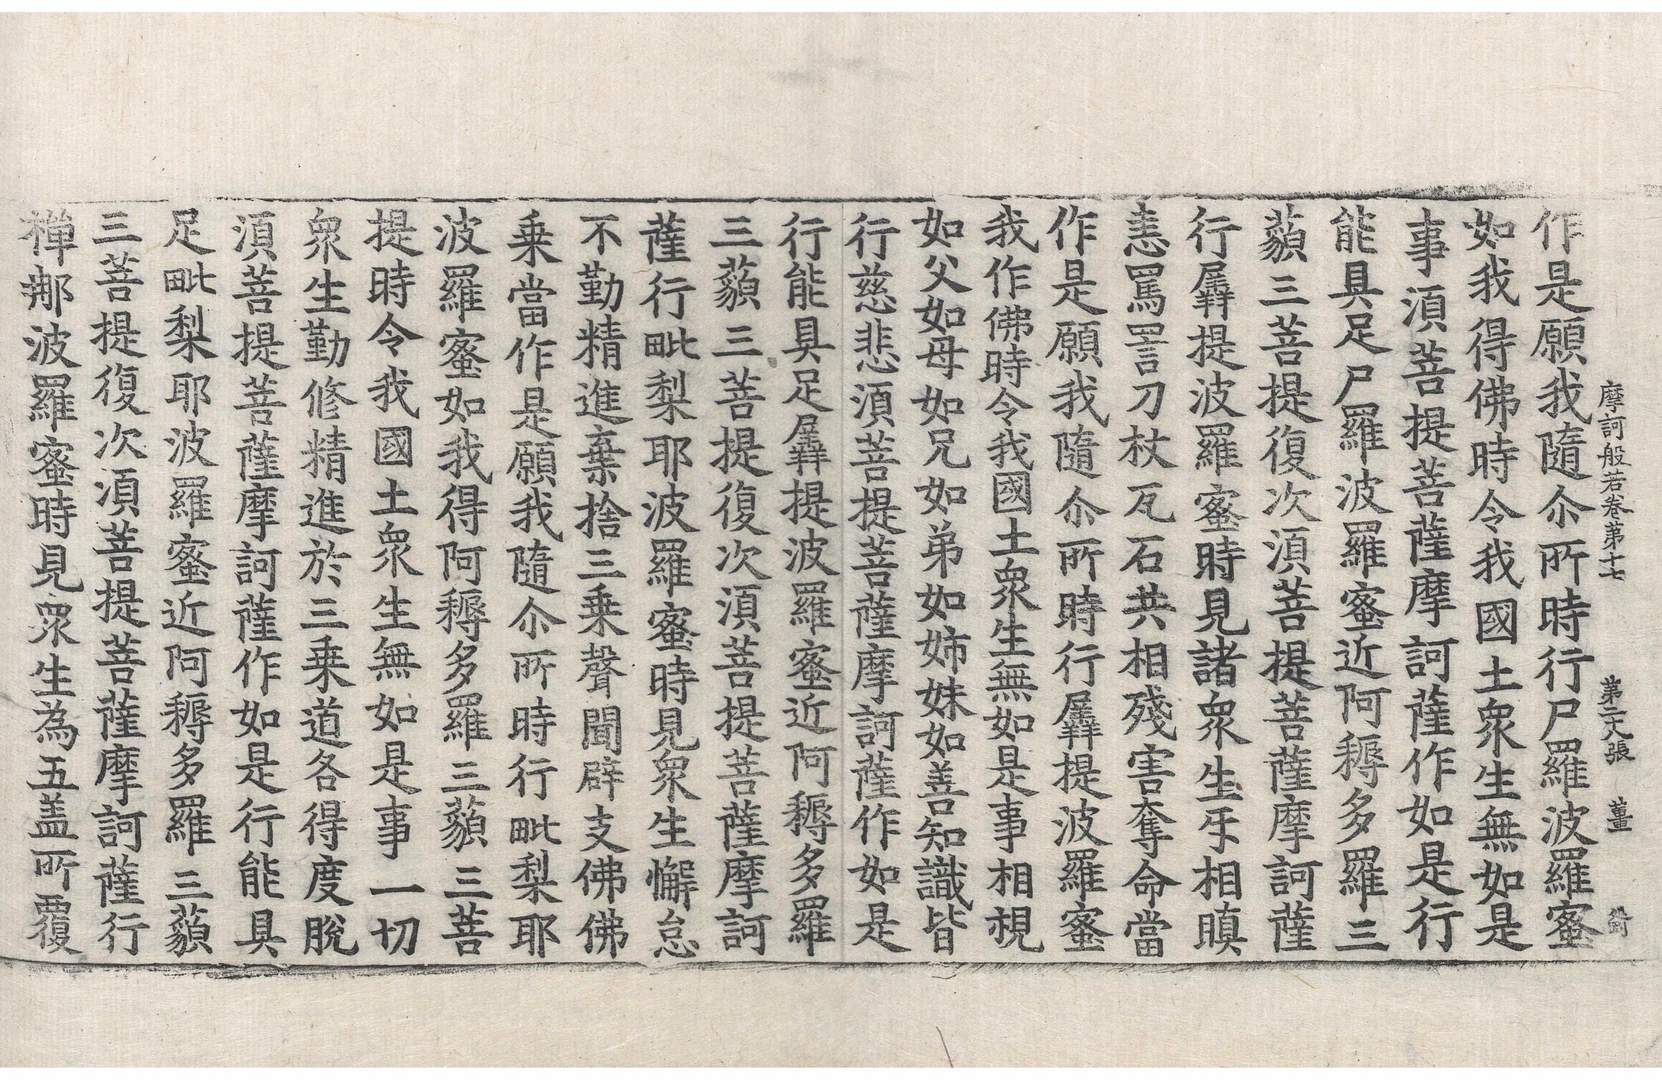 摩訶般若卷第十七　第二六張　薑
作是願我隨尒所時行尸羅波羅蜜
如我得佛時令我國土衆生無如是
事須菩提菩薩摩訶薩作如是行
能具足尸羅波羅蜜近阿耨多羅三
藐三菩提復次須菩提菩薩摩訶薩
行羼提波羅蜜時見諸衆生牙相瞋
恚罵詈刀杖瓦石共相殘害奪命當
作是願我隨尒所時行羼提波羅蜜
我作佛時令我國土衆生無如是事相視
如父如母如兄如弟如姉妹如善知識皆
行慈悲須菩提菩薩摩訶薩作如是
行能具足羼提波羅蜜近阿耨多羅
三藐三菩提復次須菩提菩薩摩訶
薩行毗梨耶波羅蜜時見衆生懈怠
不勤精進棄捨三乗聲聞辟支佛佛
乗當作是願我隨尒所時行毗梨耶
波羅蜜如我得阿耨多羅三藐三菩
提時令我國土衆生無如是事一切
衆生勤修精進於三乗道各得度脫
須菩提菩薩摩訶薩作如是行能具
足毗梨耶波羅蜜近阿耨多羅三藐
三菩提復次須菩提菩薩摩訶薩行
禪那波羅蜜時見衆生為五盖所覆